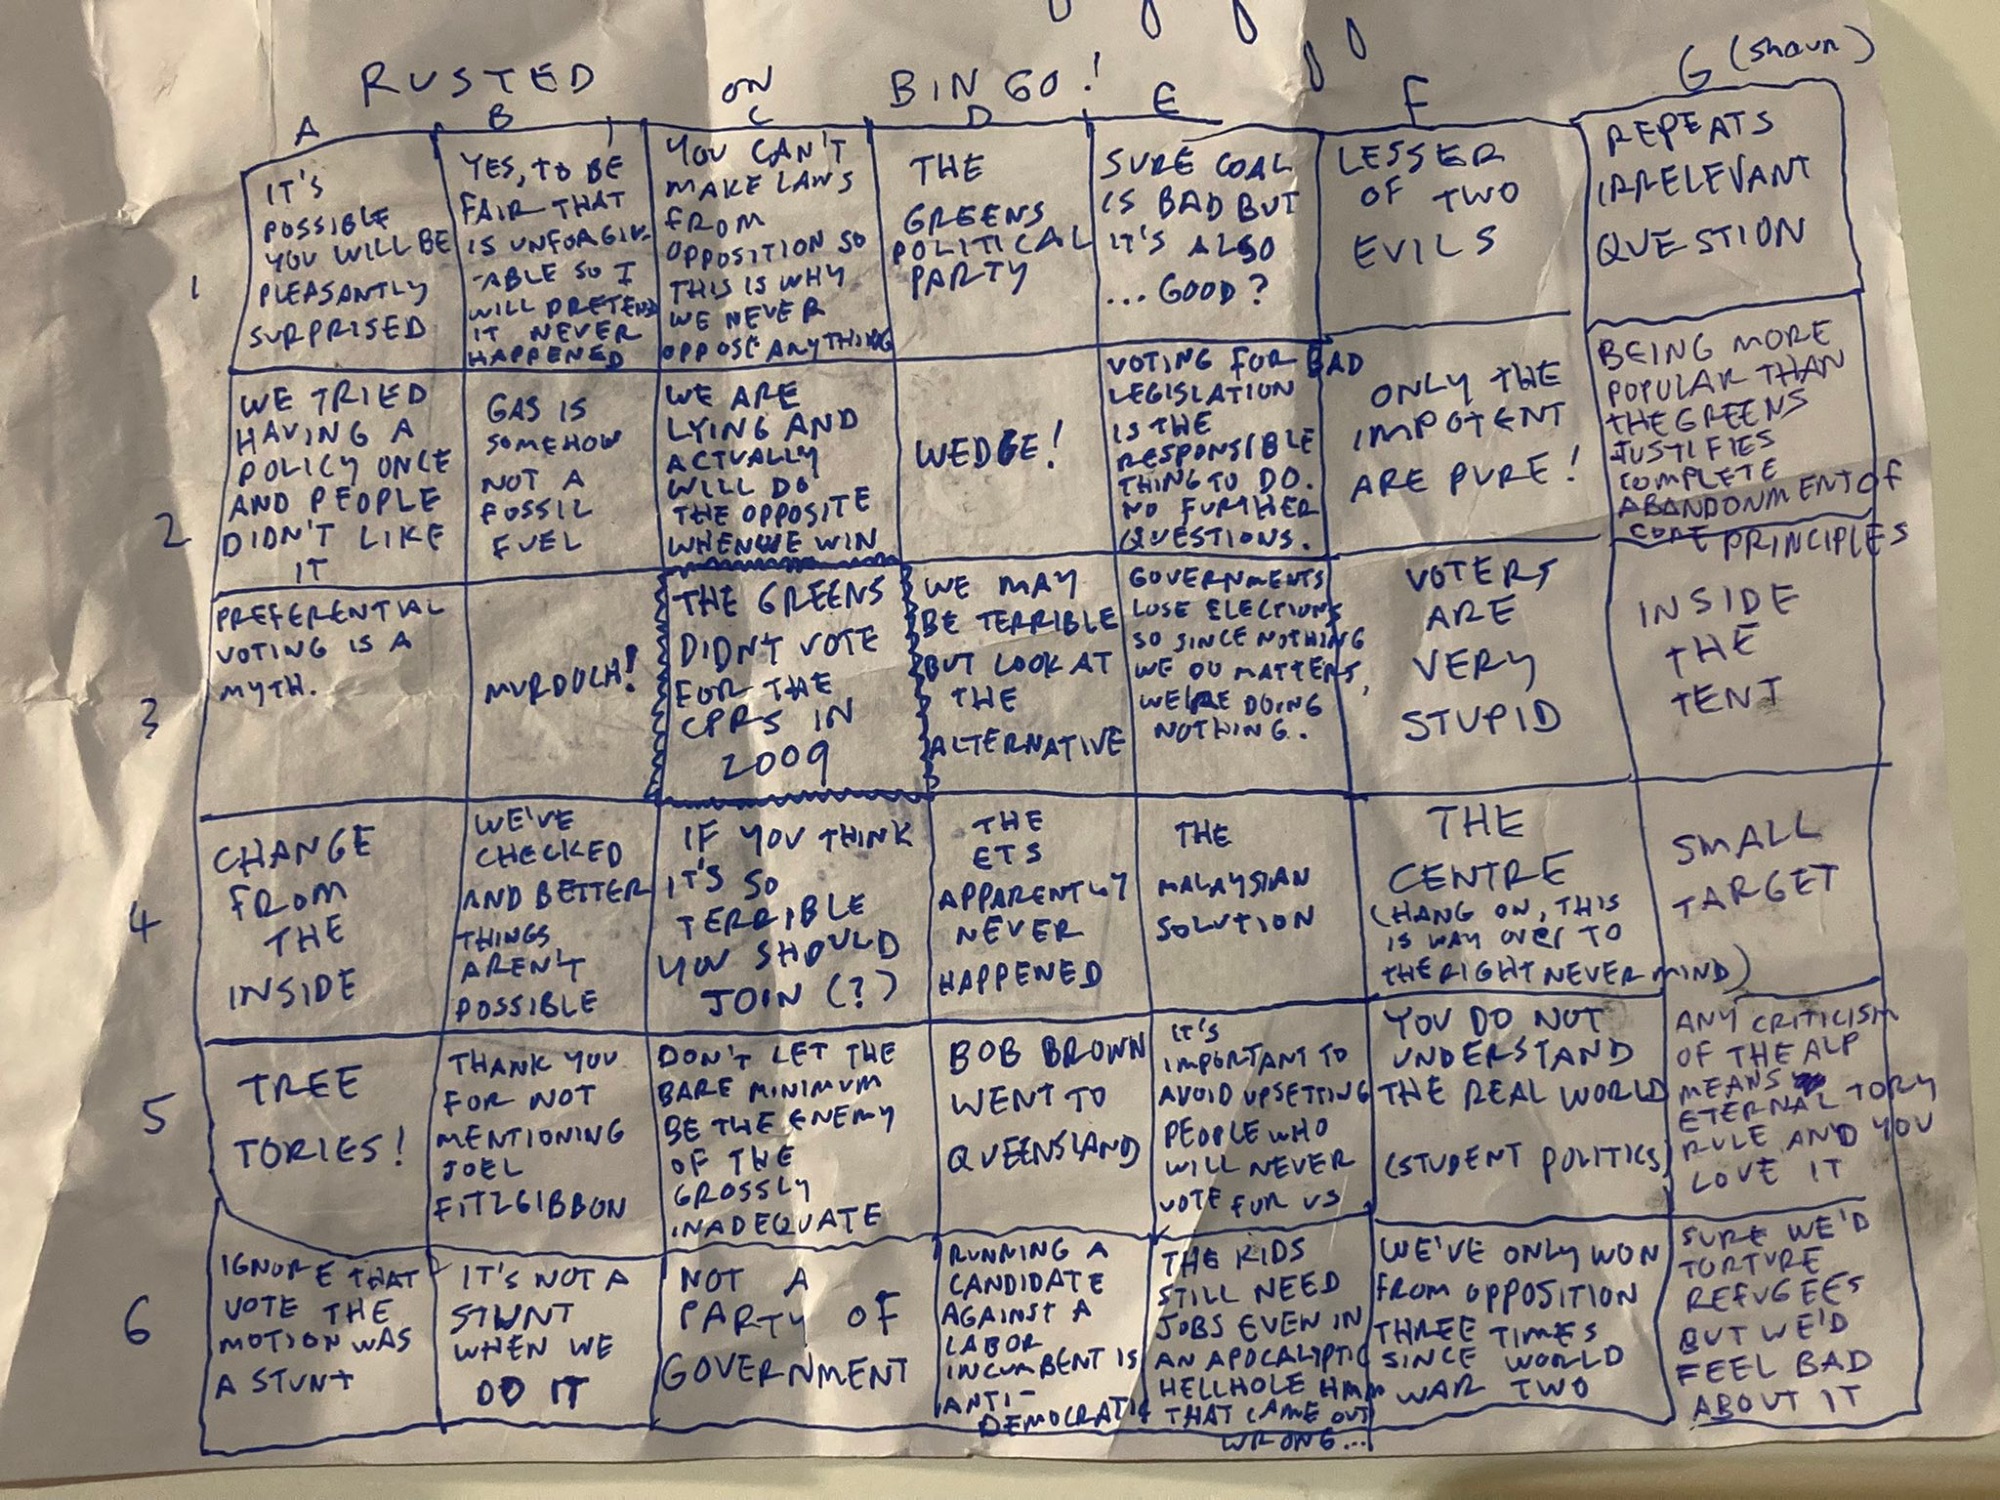 RUSTED ON BINGO!
A B C D E F G (Shaun)
1
IT'S
POSSIBLE
YOU WILL BE
PLEASANTLY
SURPRISED
YES, TO BE
FAIR THAT
IS UNFORGIV-
ABLE SO I
WILL PRETEND
IT NEVER
HAPPENED
YOU CAN'T
MAKE LAWS
FROM
OPPOSITION SO
THIS IS WHY
WE NEVER
OPPOSE ANYTHING
THE
GREENS
POLITICAL
PARTY
SURE COAL
IS BAD BUT
IT'S ALSO
... GOOD?
LESSER
OF TWO
EVILS
REPEATS
IRRELEVANT
QUESTION
2
WE TRIED
HAVING A
POLICY ONCE
AND PEOPLE
DIDN'T LIKE
IT
GAS IS
SOMEHOW
NOT A
FOSSIL
FUEL
WE ARE
LYING AND
ACTUALLY
WILL DO
THE OPPOSITE
WHEN WE WIN
WEDGE!
VOTING FOR BAD
LEGISLATION
IS THE
RESPONSIBLE
THING TO DO.
NO FURTHER
QUESTIONS.
ONLY THE
IMPOTENT
ARE PURE!
BEING MORE
POPULAR THAN
THE GREENS
JUSTIFIES
COMPLETE
ABANDONMENT OF
CORE PRINCIPLES
3
PREFERENTIAL
VOTING IS A
MYTH.
MURDOCH!
THE GREENS
DIDN'T VOTE
FOR THE
CPRS IN
2009
WE MAY
BE TERRIBLE
BUT LOOK AT
THE
ALTERNATIVE
GOVERNMENTS
LOSE ELECTIONS
SO SINCE NOTHING
WE DO MATTERS,
WE'RE DOING
NOTHING.
VOTERS
ARE
VERY
STUPID
INSIDE
THE
TENT
4
CHANGE
FROM
THE
INSIDE
WE'VE
CHECKED
AND BETTER
THINGS
AREN'T
POSSIBLE
IF YOU THINK
IT'S SO
TERRIBLE
YOU SHOULD
JOIN (?)
THE
ETS
APPARENTLY
NEVER
HAPPENED
THE
MALAYSIAN
SOLUTION
THE
CENTRE
(HANG ON, THIS
IS WAY OVER TO
THE RIGHT NEVER MIND)
SMALL
TARGET
5
TREE
TORIES!
THANK YOU
FOR NOT
MENTIONING
JOEL
FITZGIBBON
DON'T LET THE
BARE MINIMUM
BE THE ENEMY
OF THE
GROSSLY
INADEQUATE
BOB BROWN
WENT TO
QUEENSLAND
IT'S
IMPORTANT TO
AVOID UPSETTING
PEOPLE WHO
WILL NEVER
VOTE FOR US
YOU DO NOT
UNDERSTAND
THE REAL WORLD
(STUDENT POLITICS)
ANY CRITICISM
OF THE ALP
MEANS
ETERNAL TORY
RULE AND YOU
LOVE IT
6
IGNORE THAT
VOTE THE
MOTION WAS
A STUNT
IT'S NOT A
STUNT
WHEN WE
DO IT
NOT A
PARTY OF
GOVERNMENT
RUNNING A
CANDIDATE
AGAINST A
LABOR
INCUMBENT IS
ANTI-
DEMOCRATIC
THE KIDS
STILL NEED
JOBS EVEN IN
AN APOCALYPTIC
HELLHOLE HMM
THAT CAME OUT
WRONG...
WE'VE ONLY WON
FROM OPPOSITION
THREE TIMES
SINCE WORLD
WAR TWO
SURE WE'D
TORTURE
REFUGEES
BUT WE'D
FEEL BAD
ABOUT IT